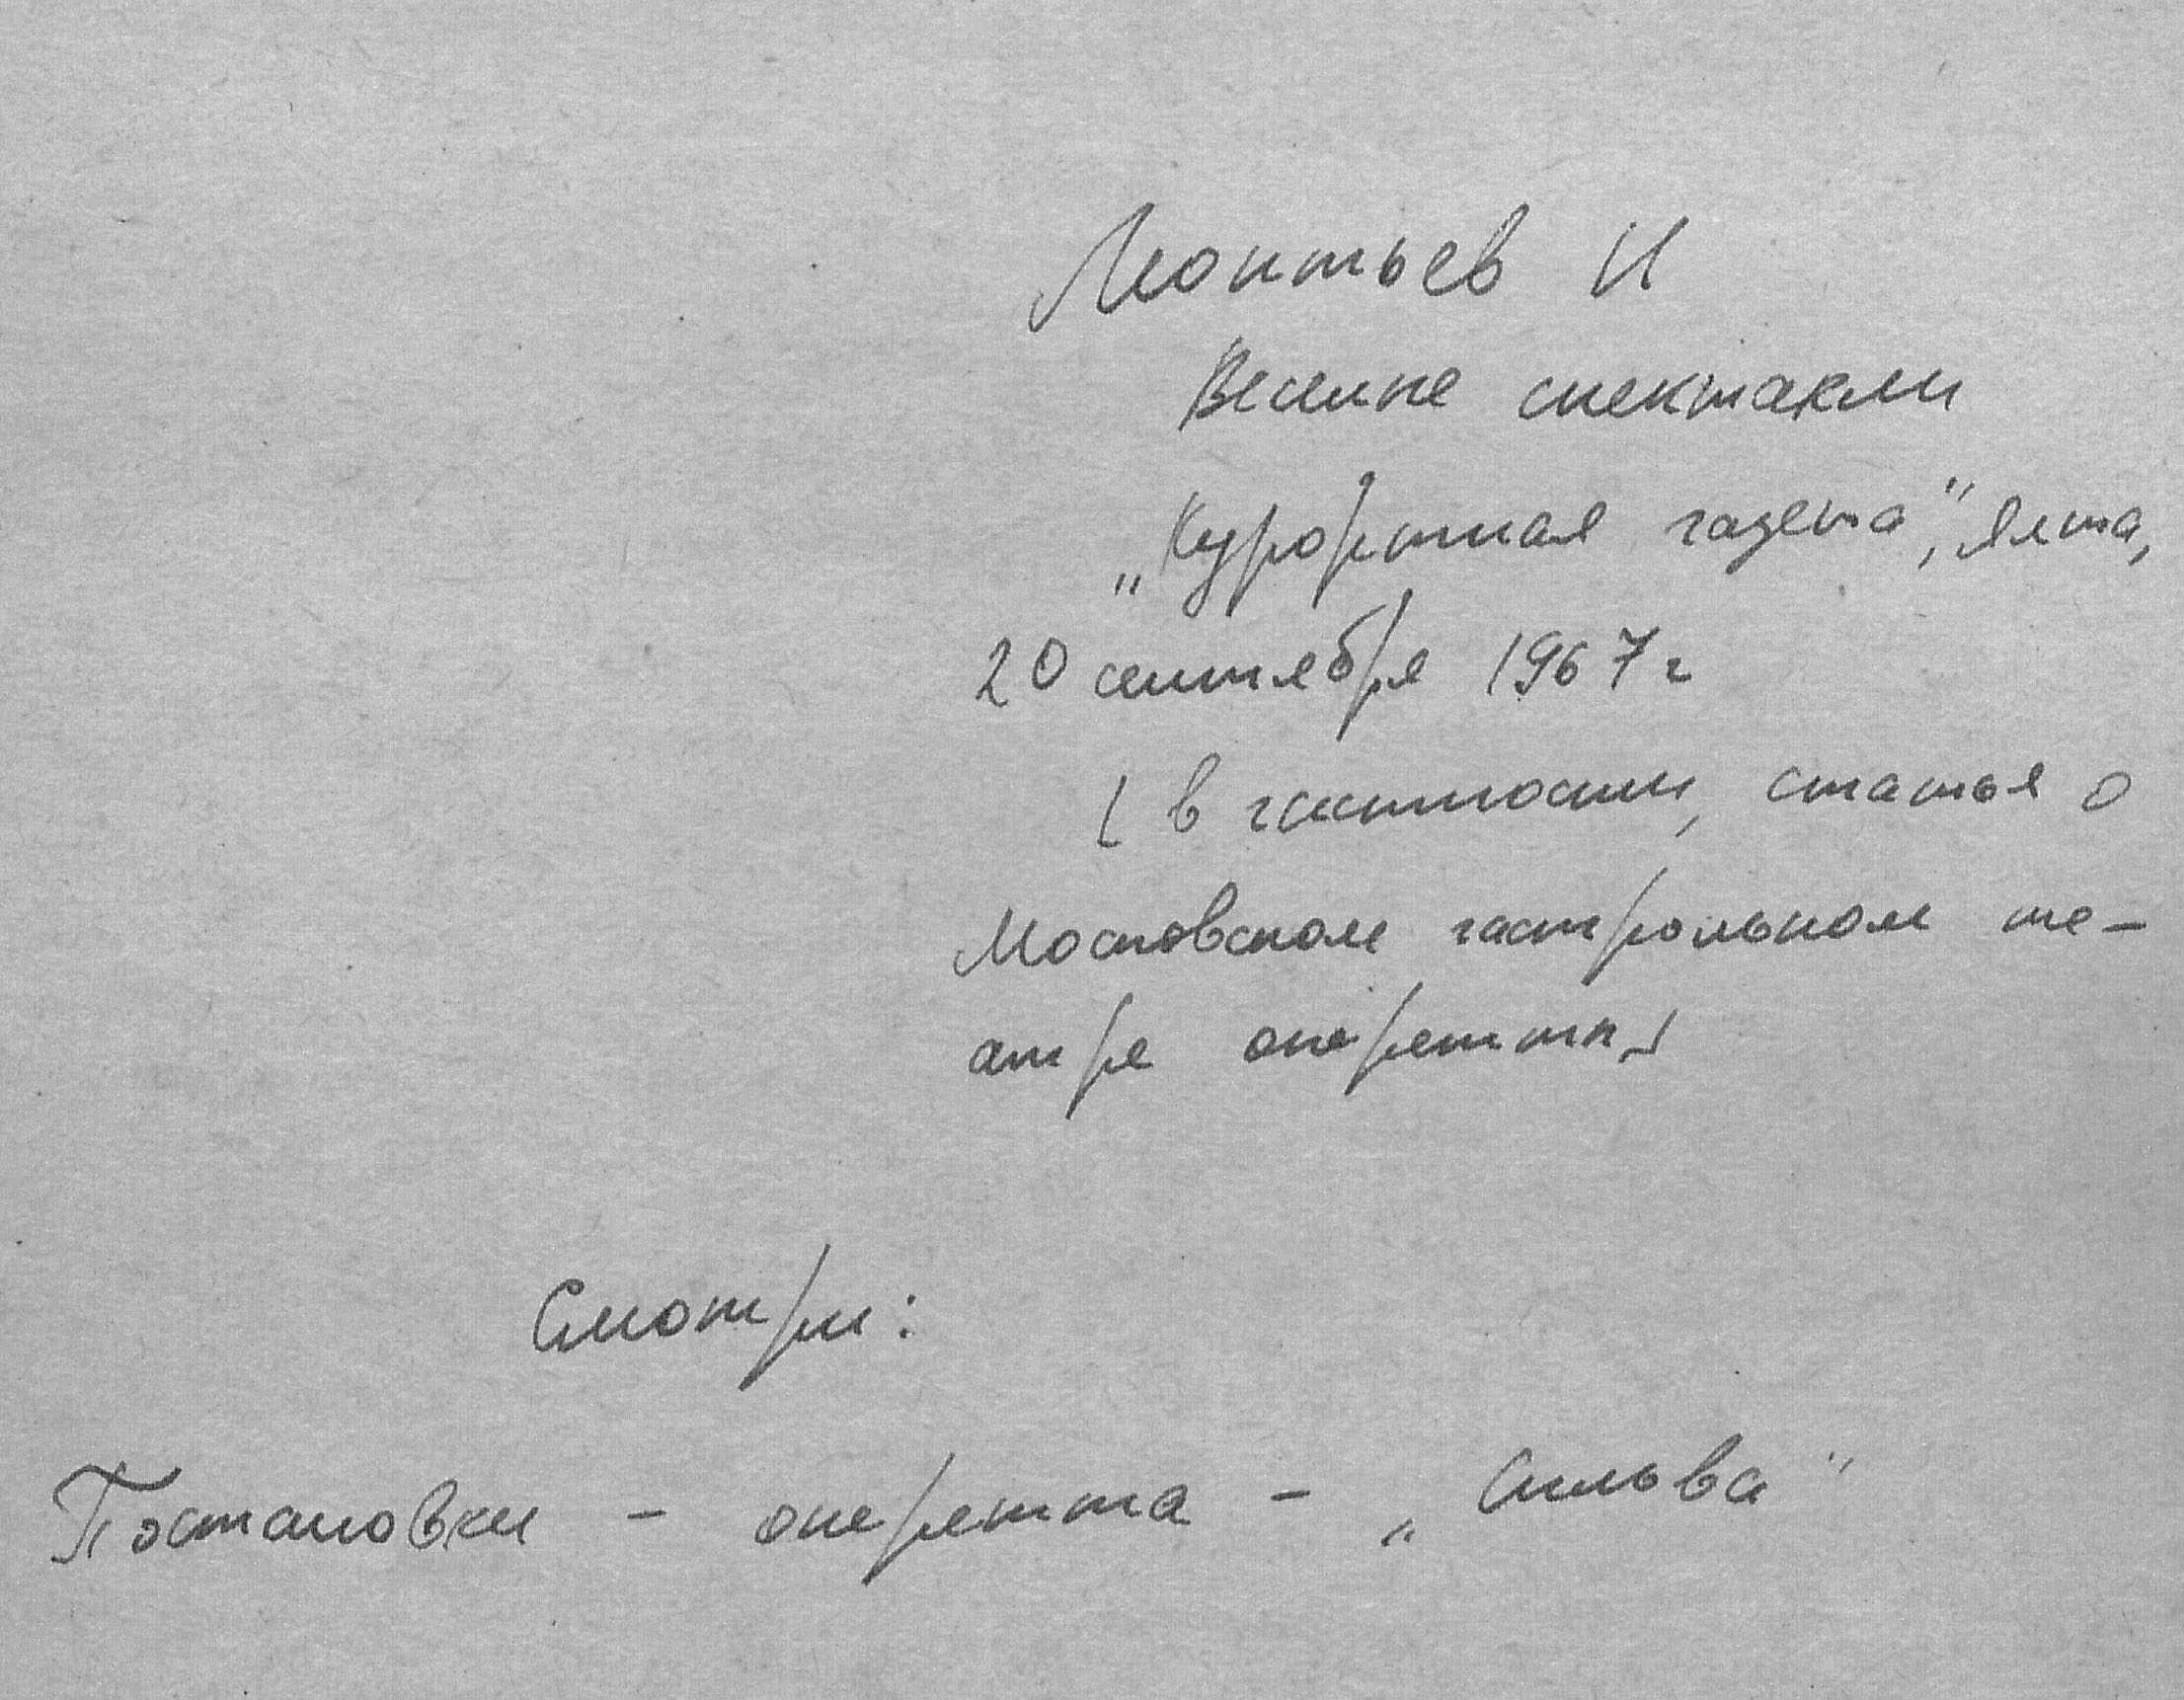 Леонтьев И
Веселые спектакли
„Курортная газета", Ялта,
20 сентября 1967 г
(в частности, статья о
Московском гастрольном те-
атре оперетты)
Смотри:
Постановки - оперетта - „Сильва"